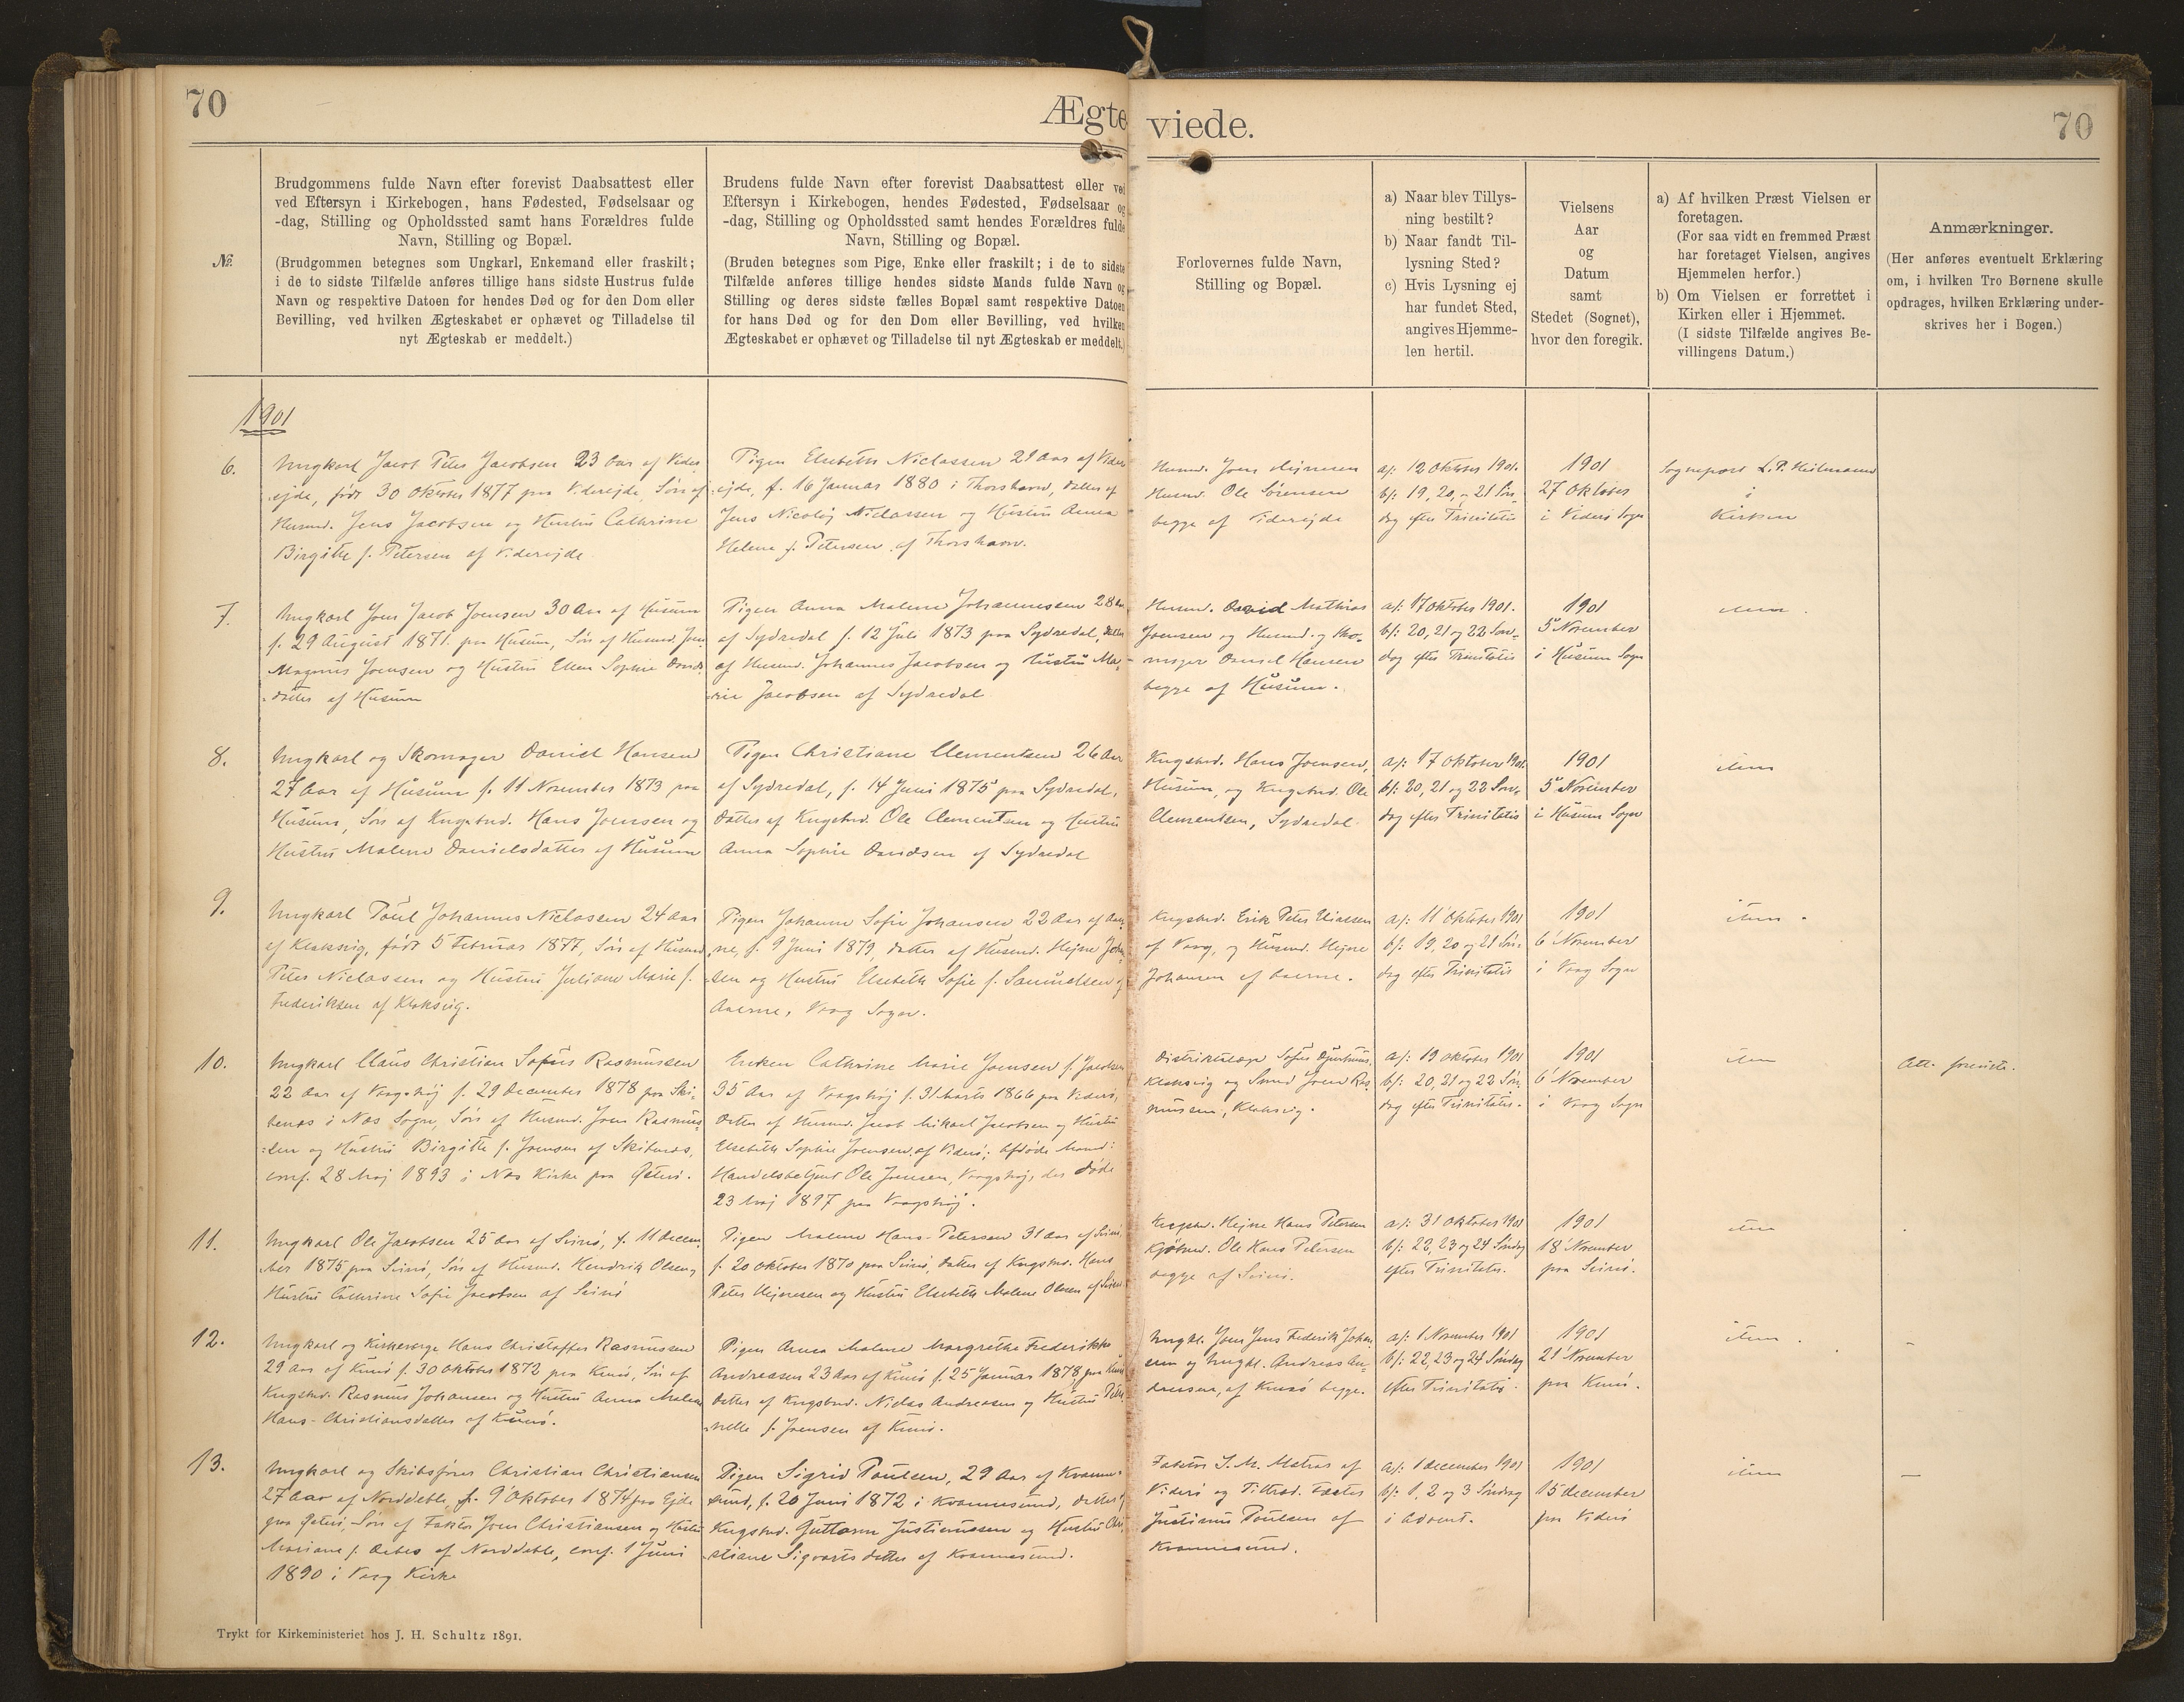 70
Ægte
viede.
70
№
Brudgommens fulde Navn efter forevist Daabsattest eller
ved Eftersyn i Kirkebogen, hans Fødested, Fødselsaar og
-dag, Stilling og Opholdssted samt hans Forældres fulde
Navn, Stilling og Bopæl.
(Brudgommen betegnes som Ungkarl, Enkemand eller fraskilt;
i de to sidste Tilfælde anføres tillige hans sidste Hustrus fulde
Navn og respektive Datoen for hendes Død og for den Dom eller
Bevilling, ved hvilken Ægteskabet er ophævet og Tilladelse til
nyt Ægteskab er meddelt.)
Brudens fulde Navn efter forevist Daabsattest eller ved
Eftersyn i Kirkebogen, hendes Fødested, Fødselsaar og
-dag, Stilling og Opholdssted samt hendes Forældres fulde
Navn, Stilling og Bopæl.
(Bruden betegnes som Pige, Enke eller fraskilt; i de to sidste
Tilfælde anføres tillige hendes sidste Mands fulde Navn og
Stilling og deres sidste fælles Bopæl samt respektive Datoen
for hans Død og for den Dom eller Bevilling, ved hvilken
Ægteskabet er ophævet og Tilladelse til nyt Ægteskab er meddelt.)
Forlovernes fulde Navn,
Stilling og Bopæl.
a) Naar blev Tillys-
ning bestilt?
b) Naar fandt Til-
lysning Sted?
c) Hvis Lysning ej
har fundet Sted,
angives Hjemme-
len hertil.
Vielsens
Aar
og
Datum
samt
Stedet (Sognet),
hvor den foregik.
a) Af hvilken Præst Vielsen er
foretagen.
(For saa vidt en fremmed Præst
har foretaget Vielsen, angives
Hjemmelen herfor.)
b) Om Vielsen er forrettet i
Kirken eller i Hjemmet.
(I sidste Tilfælde angives Be-
villingens Datum.)
Anmærkninger.
(Her anføres eventuelt Erklæring
om, i hvilken Tro Børnene skulle
opdrages, hvilken Erklæring under-
skrives her i Bogen.)
1901
6.
Ungkarl Jacob Peter Jacobsen 23 Aar af Vider-
ejde, født 30 Oktober 1877 paa Viderejde, Søn af
Husmd. Jens Jacobsen og Hustru Cathrine
Birgithe f. Petersen af Viderejde
Pigen Elsebeth Niclassen 21 Aar af Vider-
ejde, f. 16 Januar 1880 i Thorshavn, datter af
Jens Nicolaj Niclassen og Hustru Anna
Helene f. Petersen af Thorshavn.
Husmd. Joen Hejnesen
Husmd. Ole Sørensen
begge af Viderejde
a/: 12 Oktober 1901.
b/: 19, 20, og 21 Søn-
dag efter Trinitatis
1901
27 Oktober
i Viderø Sogn
Sognepræst L.P. Heilmann
i
Kirken
7.
Ungkarl Joen Jacob Joensen 30 Aar af Husum
f. 29 August 1871 paa Husum, Søn af Husmd. Joen
Magnus Joensen og Hustru Ellen Sophie Davids-
datter af Husum
Pigen Anna Malene Johannessen 28 Aar
af Sydredal f. 12 Juli 1873 paa Sydredal, datter
af Husmd. Johannes Jacobsen og Hustru Ma-
rie Jacobsen af Sydredal
Husmd. David Mathias
Joensen og Husmd. og Sko-
mager Daniel Hansen
begge af Husum.
a/: 17 Oktober 1901.
b/: 20, 21 og 22 Søn-
dag efter Trinitatis
1901
5 November
i Husum Sogn
item.
8.
Ungkarl og Skomager Daniel Hansen
27 Aar af Husum f. 11 November 1873 paa
Husum, Søn af Kngsbnd. Hans Joensen og
Hustru Malene Danielsdatter af Husum
Pigen Christiane Clementsen 26 Aar
af Sydredal, f. 14 Juni 1875 paa Sydredal,
datter af Kngsbnd. Ole Clementsen og Hustru
Anna Sophie Davidsen af Sydredal
Kngsbnd. Hans Joensen,
Husum, og Kngsbnd. Ole
Clementsen, Sydredal.
a/: 17 Oktober 1901.
b/: 20, 21 og 22 Søn-
dag efter Trinitatis
1901
5 November
i Husum Sogn
item
9.
Ungkarl Poul Johannes Niclassen 24 Aar
af Klaksvig, født 5 Februar 1877, Søn af Husmd
Peter Niclassen og Hustru Juliane Marie f.
Frederiksen af Klaksvig.
Pigen Johanne Sofie Johansen 22 Aar af Aaer-
ne, f. 9 Juni 1879, datter af Husmd. Hejne Johan-
sen og Hustru Elsebeth Sofie f. Samuelsen af
Aaerne, Vaag Sogn.
Kngsbnd. Erik Peter Eliassen
af Vaag, og Husmd. Hejne
Johansen af Aaerne.
a/: 11 Oktober 1901
b/: 19, 20 og 21 Søn-
dag efter Trinitatis
1901
6 November
i Vaag Sogn
item.
10.
Ungkarl Claus Christian Sofus Rasmussen
22 Aar af Vaagshøj f. 29 December 1878 paa Ski-
benæs i Næs Sogn, Søn af Husmd. Joen Rasmus-
sen og Hustru Birgithe f. Joensen af Skibenæs,
conf. 28 Maj 1893 i Næs Kirke paa Østerø.
Enken Cathrine Marie Joensen f. Jacobsen
35 Aar af Vaagshøj f. 31 Marts 1866 paa Viderø,
datter af Husmd. Jacob Mikael Jacobsen og Hustru
Elsebeth Sophie Joensen af Viderø; Afdøde Mand:
Handelsbetjent Ole Joensen, Vaagshøj, der døde
23 Maj 1897 paa Vaagshøj.
Distriktslæge Sofus Djurhuus,
Klaksvig og Smed Joen Ras-
mussen, Klaksvig.
a/: 19 Oktober 1901
b/: 20, 21 og 22 Søn-
dag efter Trinitatis.
1901
6 November
i Vaag Sogn
item
Att. foreviste.
11.
Ungkarl Ole Jacobsen 25 Aar af Svinø, f. 11 Decem-
ber 1875 paa Svinø, Søn af Husmd. Hendrik Olsen og
Hustru Cathrine Sofie Jacobsen af Svinø
Pigen Malene Hans-Petersen 31 Aar af Svinø,
f. 20 Oktober 1870 paa Svinø, datter af Kngsbnd. Hans
Peter Hejnesen og Hustru Elsebeth Malene Olsen af Svinø
Kngsbnd. Hejne Hans Petersen
Ole Hans Petersen
begge af Svinø.
a/: 31 Oktober 1901
b/: 22, 23 og 24 Søndag
efter Trinitatis.
1901
18 November
paa Svinø.
item
12.
Ungkarl og Kirkeværge Hans Christoffer Rasmussen
29 Aar af Kunø f. 30 Oktober 1872 paa Kunø, Søn af
Kngsbnd. Rasmus Johansen og Hustru Anna Malene
Hans-Christiansdatter af Kunø.
Pigen Anna Malene Margrethe Frederikke
Andreasen 23 Aar af Kunø f. 25 Januar 1878 paa Kunø
datter af Kngsbnd. Niclas Andreasen og Hustru Petro-
nelle f. Joensen af Kunø.
Ungkl. Joen Jens Frederik Johan-
sen og Ungkl. Andreas An-
dreasen, af Kunø begge.
a/: 1 November 1901
b/: 22, 23 og 24 Søndag
efter Trinitatis.
1901
21 November
paa Kunø.
item.
13.
Ungkarl og Skibsfører Christian Christiansen
27 Aar af Norddeble, f. 9 Oktober 1874 paa Ejde
paa Østerø, Søn af Faktor Joen Christiansen og Hustru
Mariane f. Debes af Norddeble, conf. 1 Juni
1890 i Vaag Kirke
Pigen Sigrid Poulsen, 29 Aar af Kvanne-
sund, f. 20 Juni 1872 i Kvannesund, datter af
Kngsbnd. Guttorm Justinussen og Hustru Chri-
stiane Sigvartsdatter af Kvannesund.
Faktor S. M. Matras af
Viderø og Faktor
Justinus Poulsen af
Kvannesund.
a/: 1 December 1901
b/: 1, 2 og 3 Søndag
i Advent.
1901
15 December
paa Viderø
item
Trykt for Kirkeministeriet hos J. H. Schultz 1891.